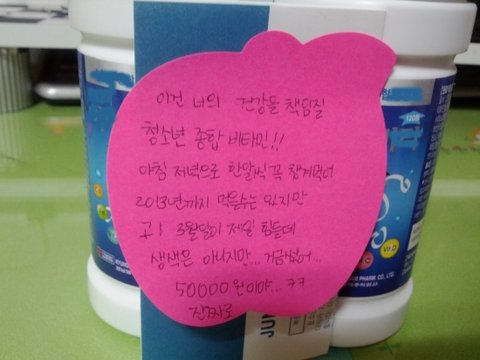 이건 너의 건강을 책임질
청소년 종합 비타민!!
아침 저녁으로 한알씩 꼭 챙겨먹어
2013년까지 먹을수는 있지만
고1 3월달이 제일 힘든데
생색은 아니지만... 거금들여...
50000원이야.. ㅋㅋ
진짜로
JUN
120정
Vit D
PHARM CO., LTD.